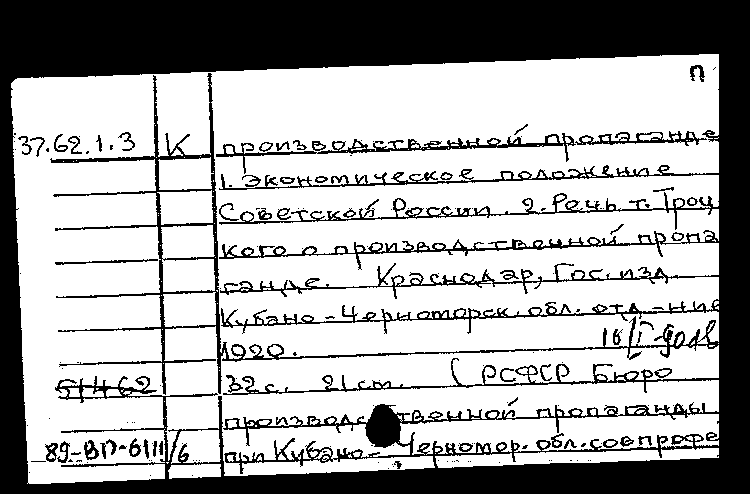 П
37.62.1.3 К производственной пропаганде
1. Экономическое положение
Советской России. 2. Речь т. Троц
кого о производственной пропа
ганде. Краснодар, Гос. изд.
Кубано-Черноморск. обл. отд-ние
1920.
51462 32с. 21см. (РСФСР Бюро
производственной пропаганды
89-ВП-6111/6 при Кубано-Черномор. обл. совпрофе